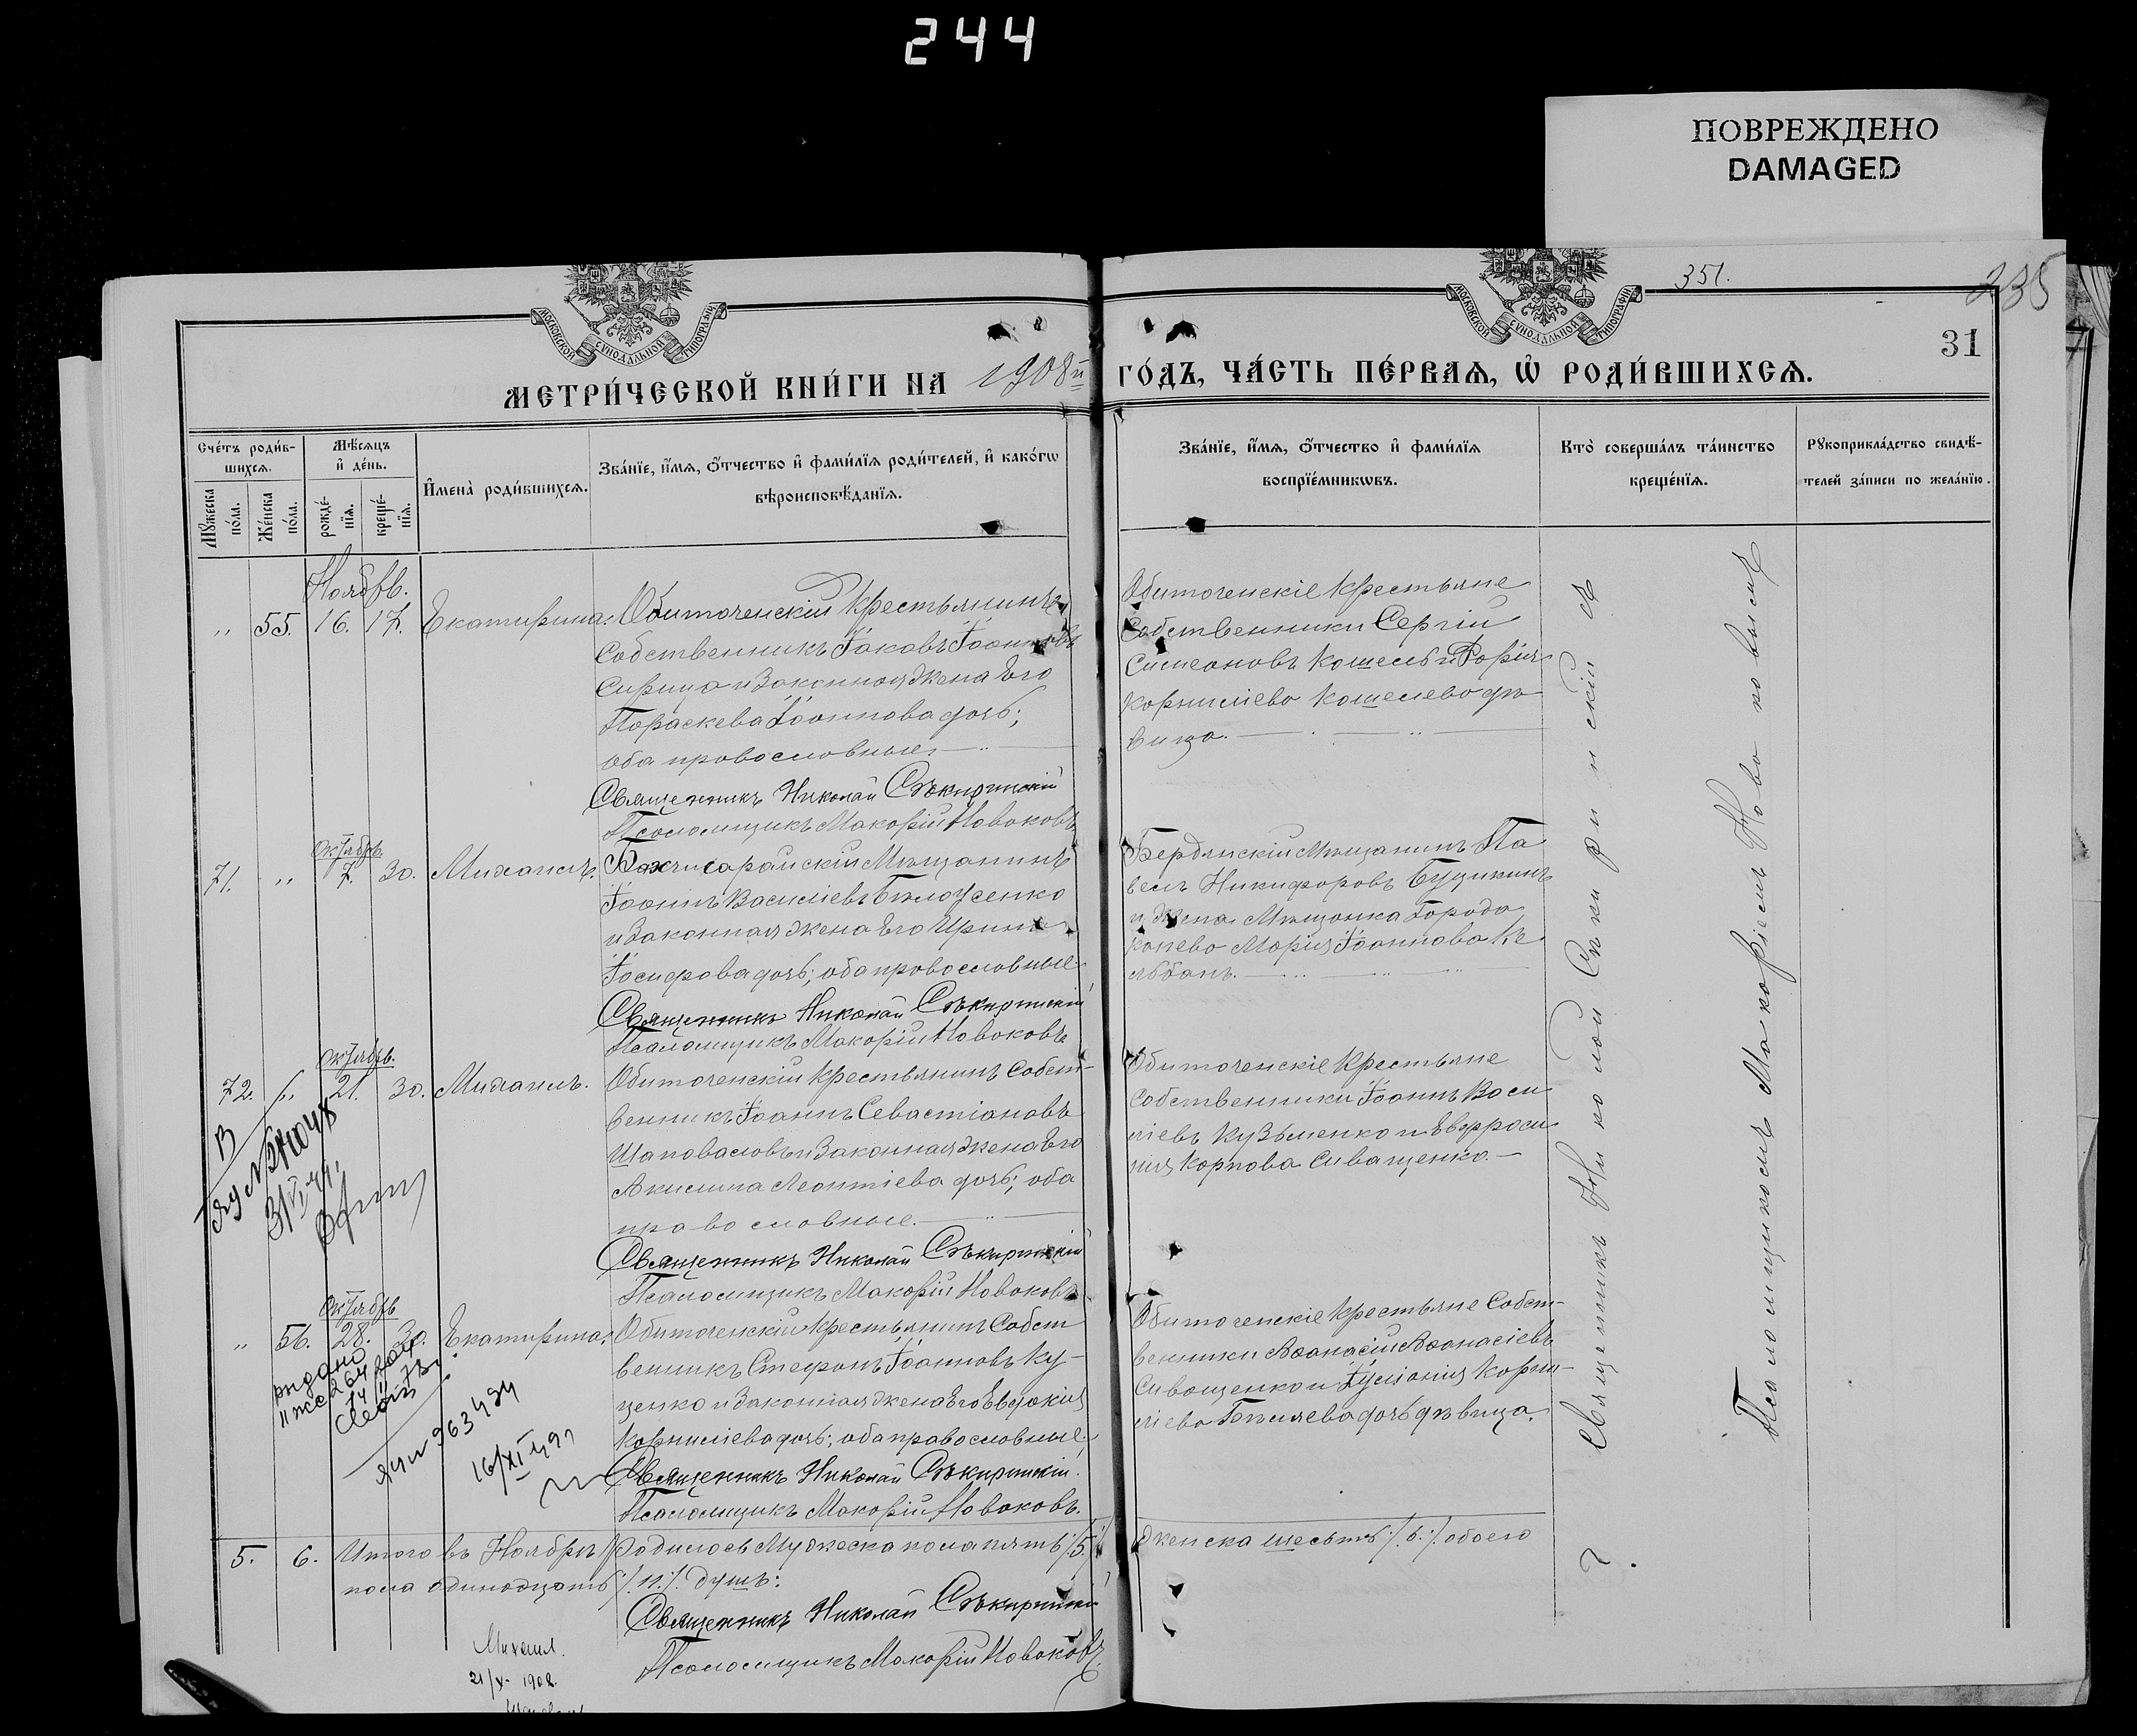 244
ПОВРЕЖДЕНО
DAMAGED
МОСКОВСКОЙ СУНОДАЛЬНОЙ ТИПОГРАФІИ
МОСКОВСКОЙ СУНОДАЛЬНОЙ ТИПОГРАФІИ
351.
235
31
МЕТРИ́ЧЕСКОЙ КНИ́ГИ НА 1908й ГО́ДЪ, ЧА́СТЬ ПЕ́РВАѦ, Ѡ҆ РОДИ́ВШИХСѦ.
Сче́тъ роди́в-
шихсѧ.
Мꙋ́жеска по́ла.
Же́нска по́ла.
Мѣ́сѧцъ
и҆ де́нь.
рожде́-
нїѧ.
креще́-
нїѧ.
И҆мена̀ роди́вшихсѧ.
Зва́нїе, и҆́мѧ, ѻ҆́тчество и҆ фами́лїѧ роди́телей, и҆ како́гѡ
вѣроисповѣ́данїѧ.
Зва́нїе, и҆́мѧ, ѻ҆́тчество и҆ фами́лїѧ
воспрїе́мникѡвъ.
Кто̀ соверша́лъ та́инство
креще́нїѧ.
Рꙋкоприкла́дство свидѣ́-
телей за́писи по жела́нїю.
Ноябрь.
" 55. 16. 17. Екатирина.
Обиточенскій крестьянинъ
Собственникъ Іаковъ Іоанновъ
Сирица и Законная жена Его
Пораскева Іоаннова дочь;
оба провословные.
Священникъ Николай Сѣкиринскій
Псаломщикъ Макорій Новаковъ
Обиточенскіе крестьяне
Собственники Сергій
Симеоновъ Кошель и Марія
Корниліево Кошелево дѣ-
вица.
Октябрь
71. " 7. 30. Михаилъ.
Бахчисарайскій Мѣщанинъ
Іоаннъ Василіевъ Бѣлоусенко
и Законная жена Его Ирина
Іосифова дочь; оба провословные
Священникъ Николай Сѣкиринскій
Псаломщикъ Макорій Новаковъ
Бердянскій Мѣщанинъ Па
велъ Никифоровъ Буцикинъ
и жена Мѣщонка Города
Марія Іоаннова
Октябрь.
72. " 21. 30. Михаилъ.
Обиточенскій крестьянинъ Собст-
венникъ Іоаннъ Севастіановъ
Шаповаловъ и Законная жена Его
Акилина Леонтіева дочь; оба
православные.
Священникъ Николай Сѣкиринскій
Псаломщикъ Макорій Новаковъ
Обиточенскіе крестьяне
Собственники Іоаннъ Васи
ліевъ Кузьменко и Евфроси
нія Корпова Сиващенко.
Октябрь
" 56. 28. 30. Екатирина.
Обиточенскій крестьянинъ Собст
венникъ Стефанъ Іоанновъ Ку-
ценко и Законная жена Его Евдокія
Корниліева дочь; оба православные.
Священникъ Николай Сѣкиринскій.
Псаломщикъ Макорій Новаковъ.
Обиточенскіе крестьяне Собст-
венники Аѳанасій Аѳанасіевъ
Сиващенко и Іуліанія Корни-
ліева дочь дѣвица.
963434
16/XI
5. 6. Итого въ Ноябрѣ родилось Мужеска пола пять /:5:/ женска шесть /:6:/ обоего
пола одинадцать /:11:/ душъ:
Священникъ Николай Сѣкиринскій
Псаломщикъ Макорій Новаковъ.
Михаил.
21/X- 1908.
Священникъ Николай Сѣкиринскій
Псаломщикомъ Макоріемъ Новаковымъ